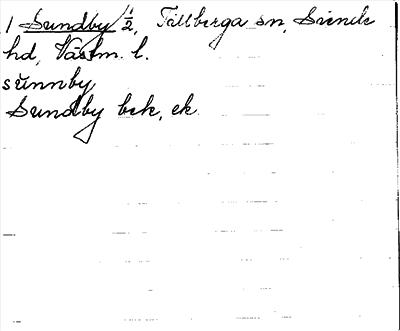 1 Sundby 1/2, Tillberga sn, Siende
hd, Västm. l.
sŭnnby
Sundby bek, ek